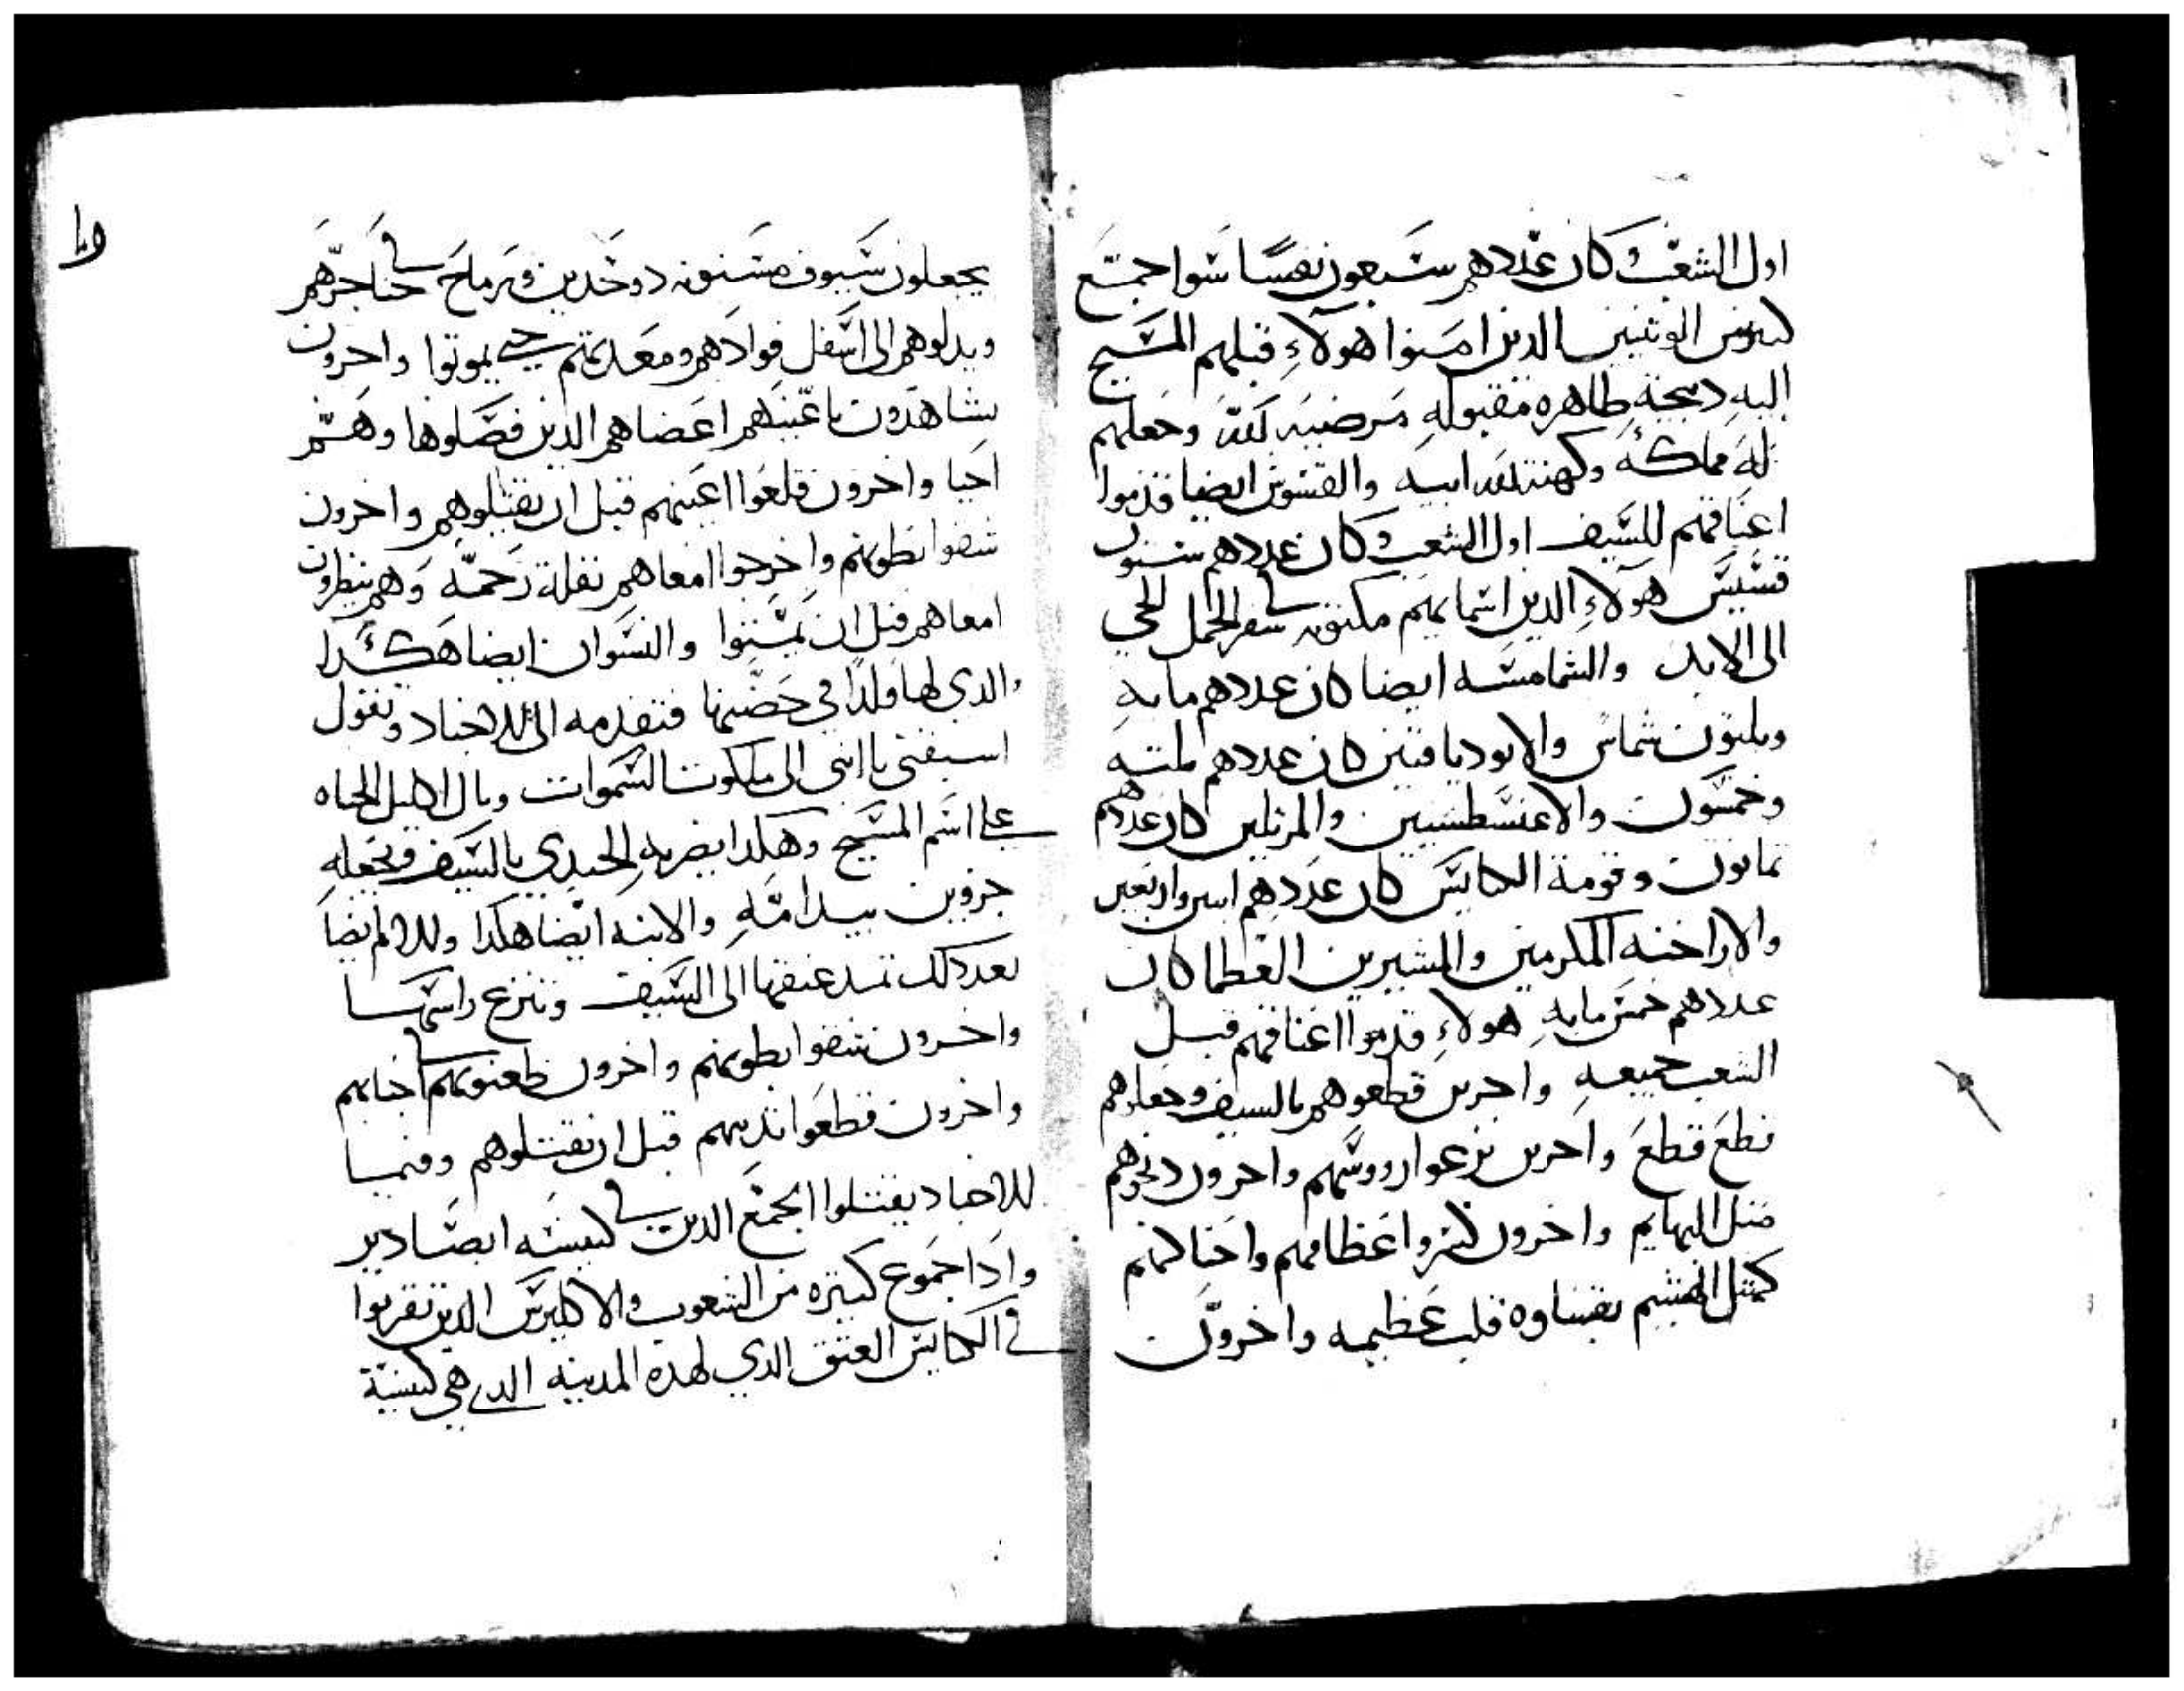 اول الشعب وكان عددهم سبعون نفسا سوا جمع
كبير من الوثنيين الدين امنوا هولاءِ قبلهم المسيح
اليه دبيحة طاهره مقبوله مرضيه لله وجعلهم
له مملكه وكهنة لله ابيه والقسوس ايضا قدموا
اعناقهم للسيف اول الشعب وكان عددهم ستون
قسيس هولاءِ الدين اسمايهم مكتوبه في سفر الحمل الحي
الى الابد والشمامسه ايضا كان عددهم مايه
وتلتون شماس والابودياقنين كان عددهم تلتيه
وخمسون والاغنسطسيين والمرتلين كان عددهم
تمانون وقومة الكنايس كان عددهم اتنين واربعين
والاراخنه المكرمين والمشيرين العظما كان
عددهم خمس مايه هولاءِ قدموا اعناقهم قبل
الشعب جميعه واخرين قطعوهم بالسيف وجعلوهم
قطع قطع واخرين نزعوا رووسهم واخرون دبحوهم
متل البهايم واخرون كسروا عظامهم واحناكهم
كمتل الهشيم بقساوه قلب عظيمه واخرون
١٥
يجعلون سيوف مسنونه دو حدين ورماح في حناجرهم
ويدلوهم الى اسفل فوادهم ومعدتهم حتى يموتوا واخرون
يشاهدون باعينهم اعضاهم الدين فصلوها وهم
احيا واخرون قلعوا اعينهم قبل ان يقتلوهم واخرون
شقوا بطونهم واخرجوا امعاهم بقلة رحمه وهم ينظرون
امعاهم قبل ان يموتوا والنسوان ايضا هكدا
والدي لها ولدا في حضنها فتقدمه الى الاجناد وتقول
اسبقني يا ابني الى ملكوت السموات ونال اكليل الحياه
على اسم المسيح وهكدا يضربه الجندي بالسيف ويجعله
جزوين بيد امه والابنه ايضا هكدا وللام ايضا
بعد دلك تمد عنقها الى السيف وتنزع راسها
واخرون شقوا بطونهم واخرون طعنوهم في اجنابهم
واخرون قطعوا تدييهم قبل ان يقتلوهم وفيما
الاجناد يقتلوا الجمع الدين في كنيسه ابصادير
وادا جموع كتيره من الشعوب والاكليرس الدين تقربوا
في الكنايس العتق الدي لهده المدينه الدي هي كنيسة